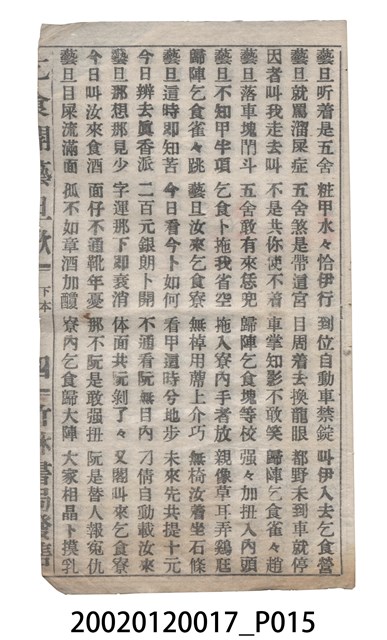 藝旦听着是五舍 粧甲水々恰伊行 到位自動車禁錠 叫伊入去乞食營
藝旦就罵溜屎症 五舍煞是帶這宮 目周着去換龍眼 都野未到車就停
因者叫我走去叫 不是共你使不着 車掌知影不敢笑 歸陣乞食雀々趙
藝旦落車塊鬪斗 五舍敢有來恁兜 歸陣乞食塊等校 强々加扭入內頭
藝旦不知甲半項 乞食卜拖我省空 拖入寮內手者放 親像草耳弄鷄尫
歸陣乞食雀々跳 藝旦汝來乞食寮 無棹用蓆上介巧 無椅汝着坐石條
藝旦這時即知苦 今日看今卜如何 看甲這時分地步 未來先共提十元
今日辨去眞香派 二百元銀朗卜開 不通看阮無目內 才倩自動載汝來
藝旦那想那見少 字運那下即衰消 体面共阮剝了々 又閣叫來乞食寮
今日叫汝來食酒 面仔不通靴年憂 那不阮是敢强扭 阮是替人報寃仇
藝旦目屎流滿面 孤不如章酒加醴 寮內乞食歸大陣 大家相晶卜摸乳
乞食開藝旦歌 下本 四 竹林書局發售
20020120017_P015